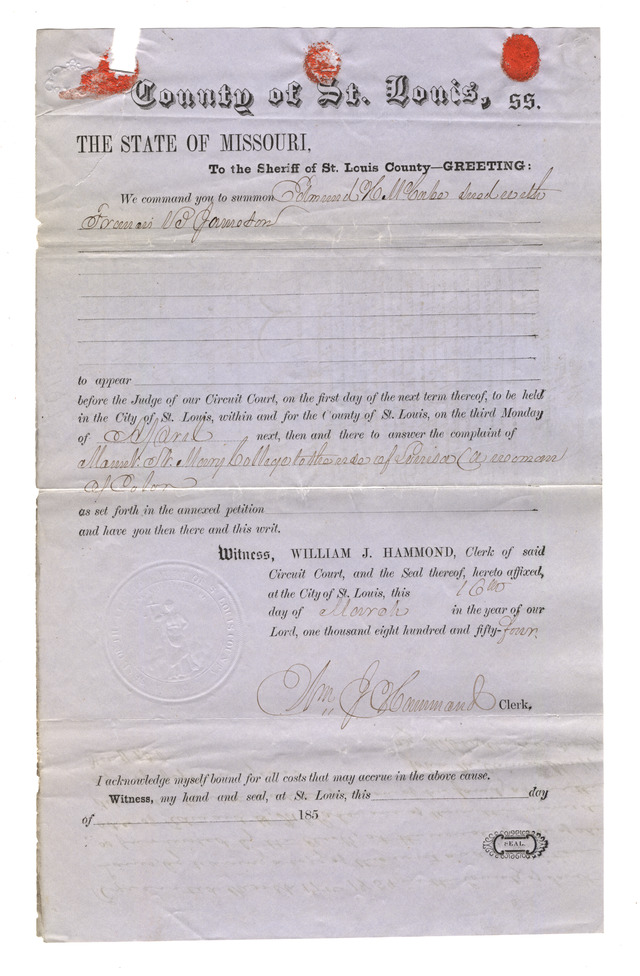 County of St. Louis, ss.
THE STATE OF MISSOURI,
To the Sheriff of St. Louis County—GREETING:
We command you to summon Edmund H. McCabe sued with
Francis V P Jameson
to appear
before the Judge of our Circuit Court, on the first day of the next term thereof, to be held
in the City of St. Louis, within and for the County of St. Louis, on the third Monday
of April next, then and there to answer the complaint of
St. Mary College to the use of Louisa (a woman
of Color
as set forth in the annexed petition
and have you then there and this writ.
Witness, WILLIAM J. HAMMOND, Clerk of said
Circuit Court, and the Seal thereof, hereto affixed,
at the City of St. Louis, this 16th
day of March in the year of our
Lord, one thousand eight hundred and fifty-four
Wm J Hammond Clerk.
I acknowledge myself bound for all costs that may accrue in the above cause.
Witness, my hand and seal, at St. Louis, this day
of 185
SEAL.